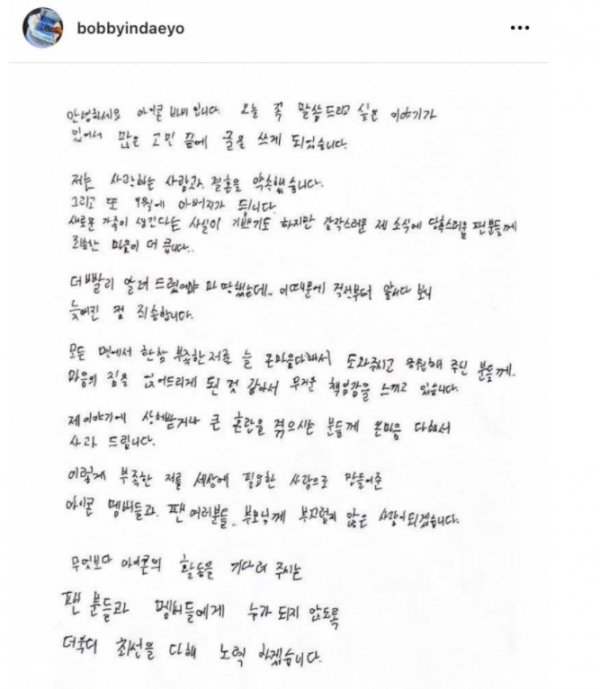 bobbyindaeyo
안녕하세요 아이콘 바비입니다. 오늘 꼭 말씀드리고 싶은 이야기가
있어서 많은 고민 끝에 글을 쓰게 되었습니다.
저는 사랑하는 사람과 결혼을 약속했습니다.
그리고 또 9월에 아버지가 됩니다.
새로운 가족이 생긴다는 사실이 기쁘기도 하지만 갑작스러운 제 소식에 당혹스러울 팬분들께
죄송한 마음이 더 큽니다..
더 빨리 알려 드렸어야 마땅했는데.. 이 때문에 걱정부터 앞서다 보니
늦어진 점 죄송합니다.
모든 면에서 한참 부족한 저를 늘 온마음다해서 도와주시고 응원해 주신 분들께.
마음의 짐을 얹어드리게 된 것 같아서 무거운 책임감을 느끼고 있습니다.
제 이야기에 상처받거나 큰 혼란을 겪으시는 분들께 온마음 다해서
사과 드립니다.
이렇게 부족한 저를 세상에 필요한 사람으로 만들어준
아이콘 멤버들과. 팬 여러분들. 부모님께 부끄럽지 않은 사람이되겠습니다.
무엇보다 아이콘의 활동을 기다려 주시는
팬 분들과 멤버들에게 누가 되지 않도록
더욱더 최선을 다해 노력 하겠습니다.